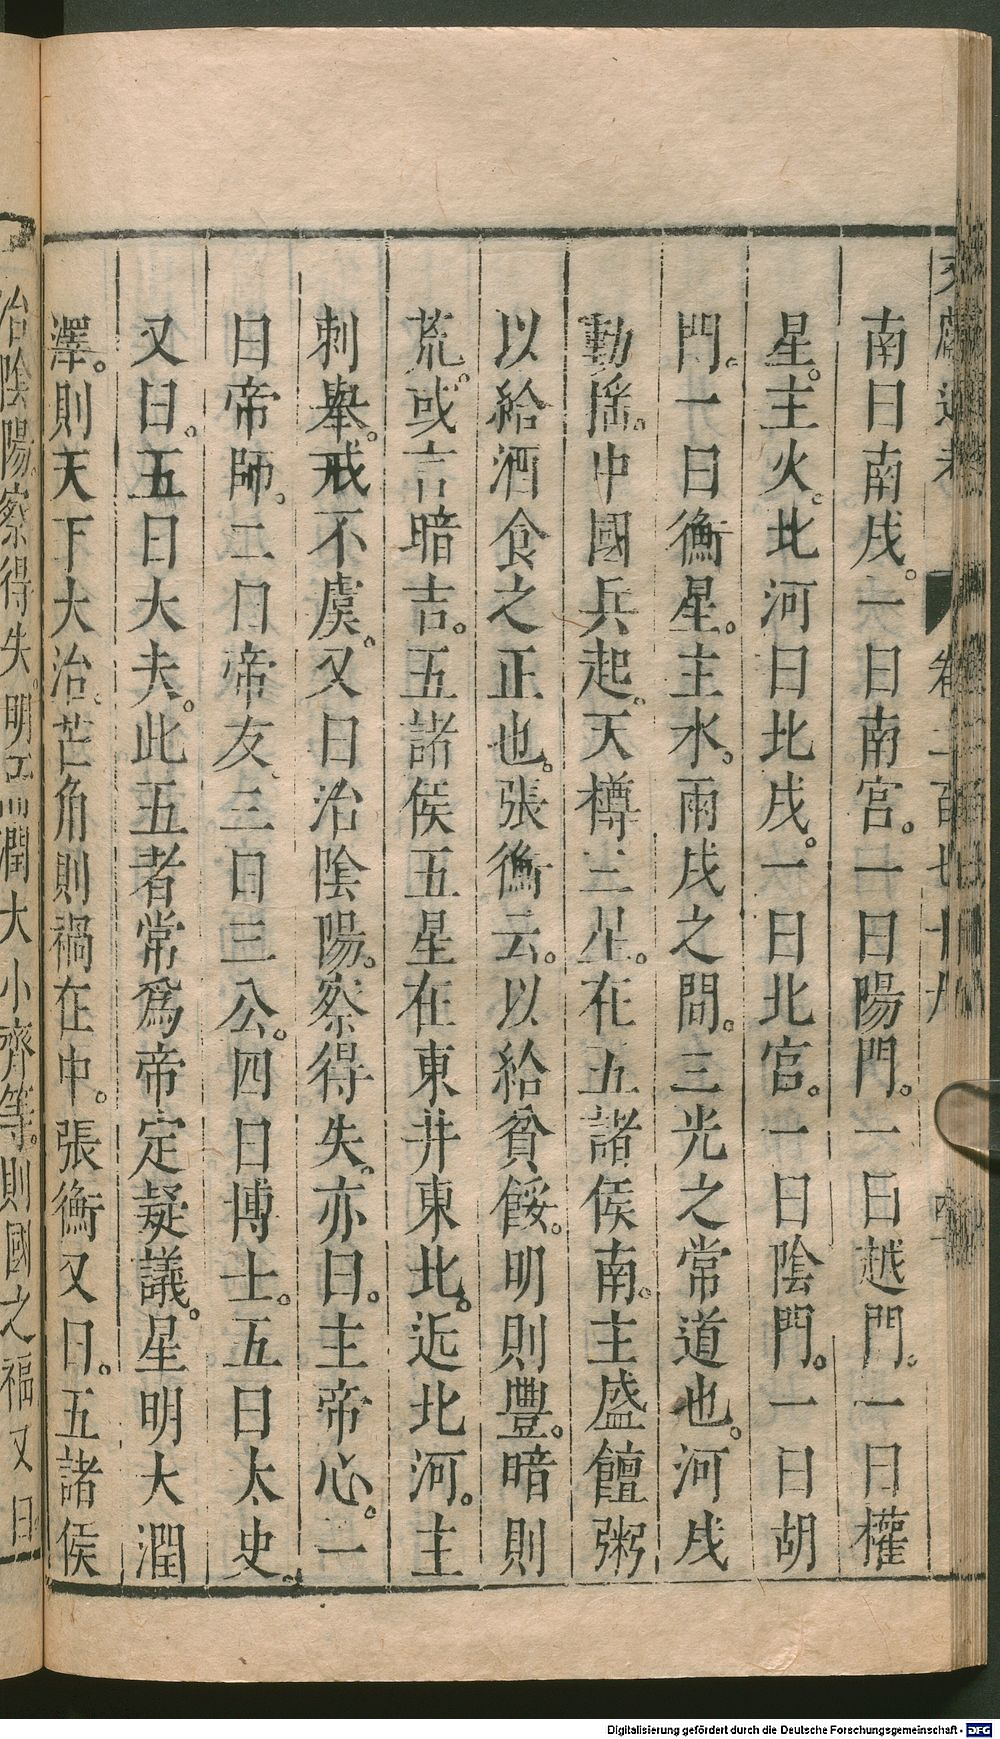 文獻通考 卷二百七十九
南曰南戍。一曰南宫。一曰陽門。一曰越門。一曰權
星。主火。北河曰北戍。一曰北宫。一曰陰門。一曰胡
門。一曰衡星。主水。兩戍之間。三光之常道也。河戍
動揺。中國兵起。天樽三星。在五諸侯南。主盛饘粥
以給酒食之正也。張衡云。以給貧餒。明則豐。暗則
荒。或言暗吉。五諸侯五星在東井東北。近北河。主
刺舉。戒不虞。又曰治陰陽。察得失。亦曰。主帝心。一
曰帝師。二曰帝友、三曰三公。四曰博士。五曰太史。
又曰。五曰大夫。此五者常爲帝定疑議。星明大潤
澤。則天下大治。芒角則禍在中。張衡又曰。五諸侯
治陰陽。察得失。明而潤大小齊等。則國之福又曰。
Digitalisierung gefördert durch die Deutsche Forschungsgemeinschaft - DFG